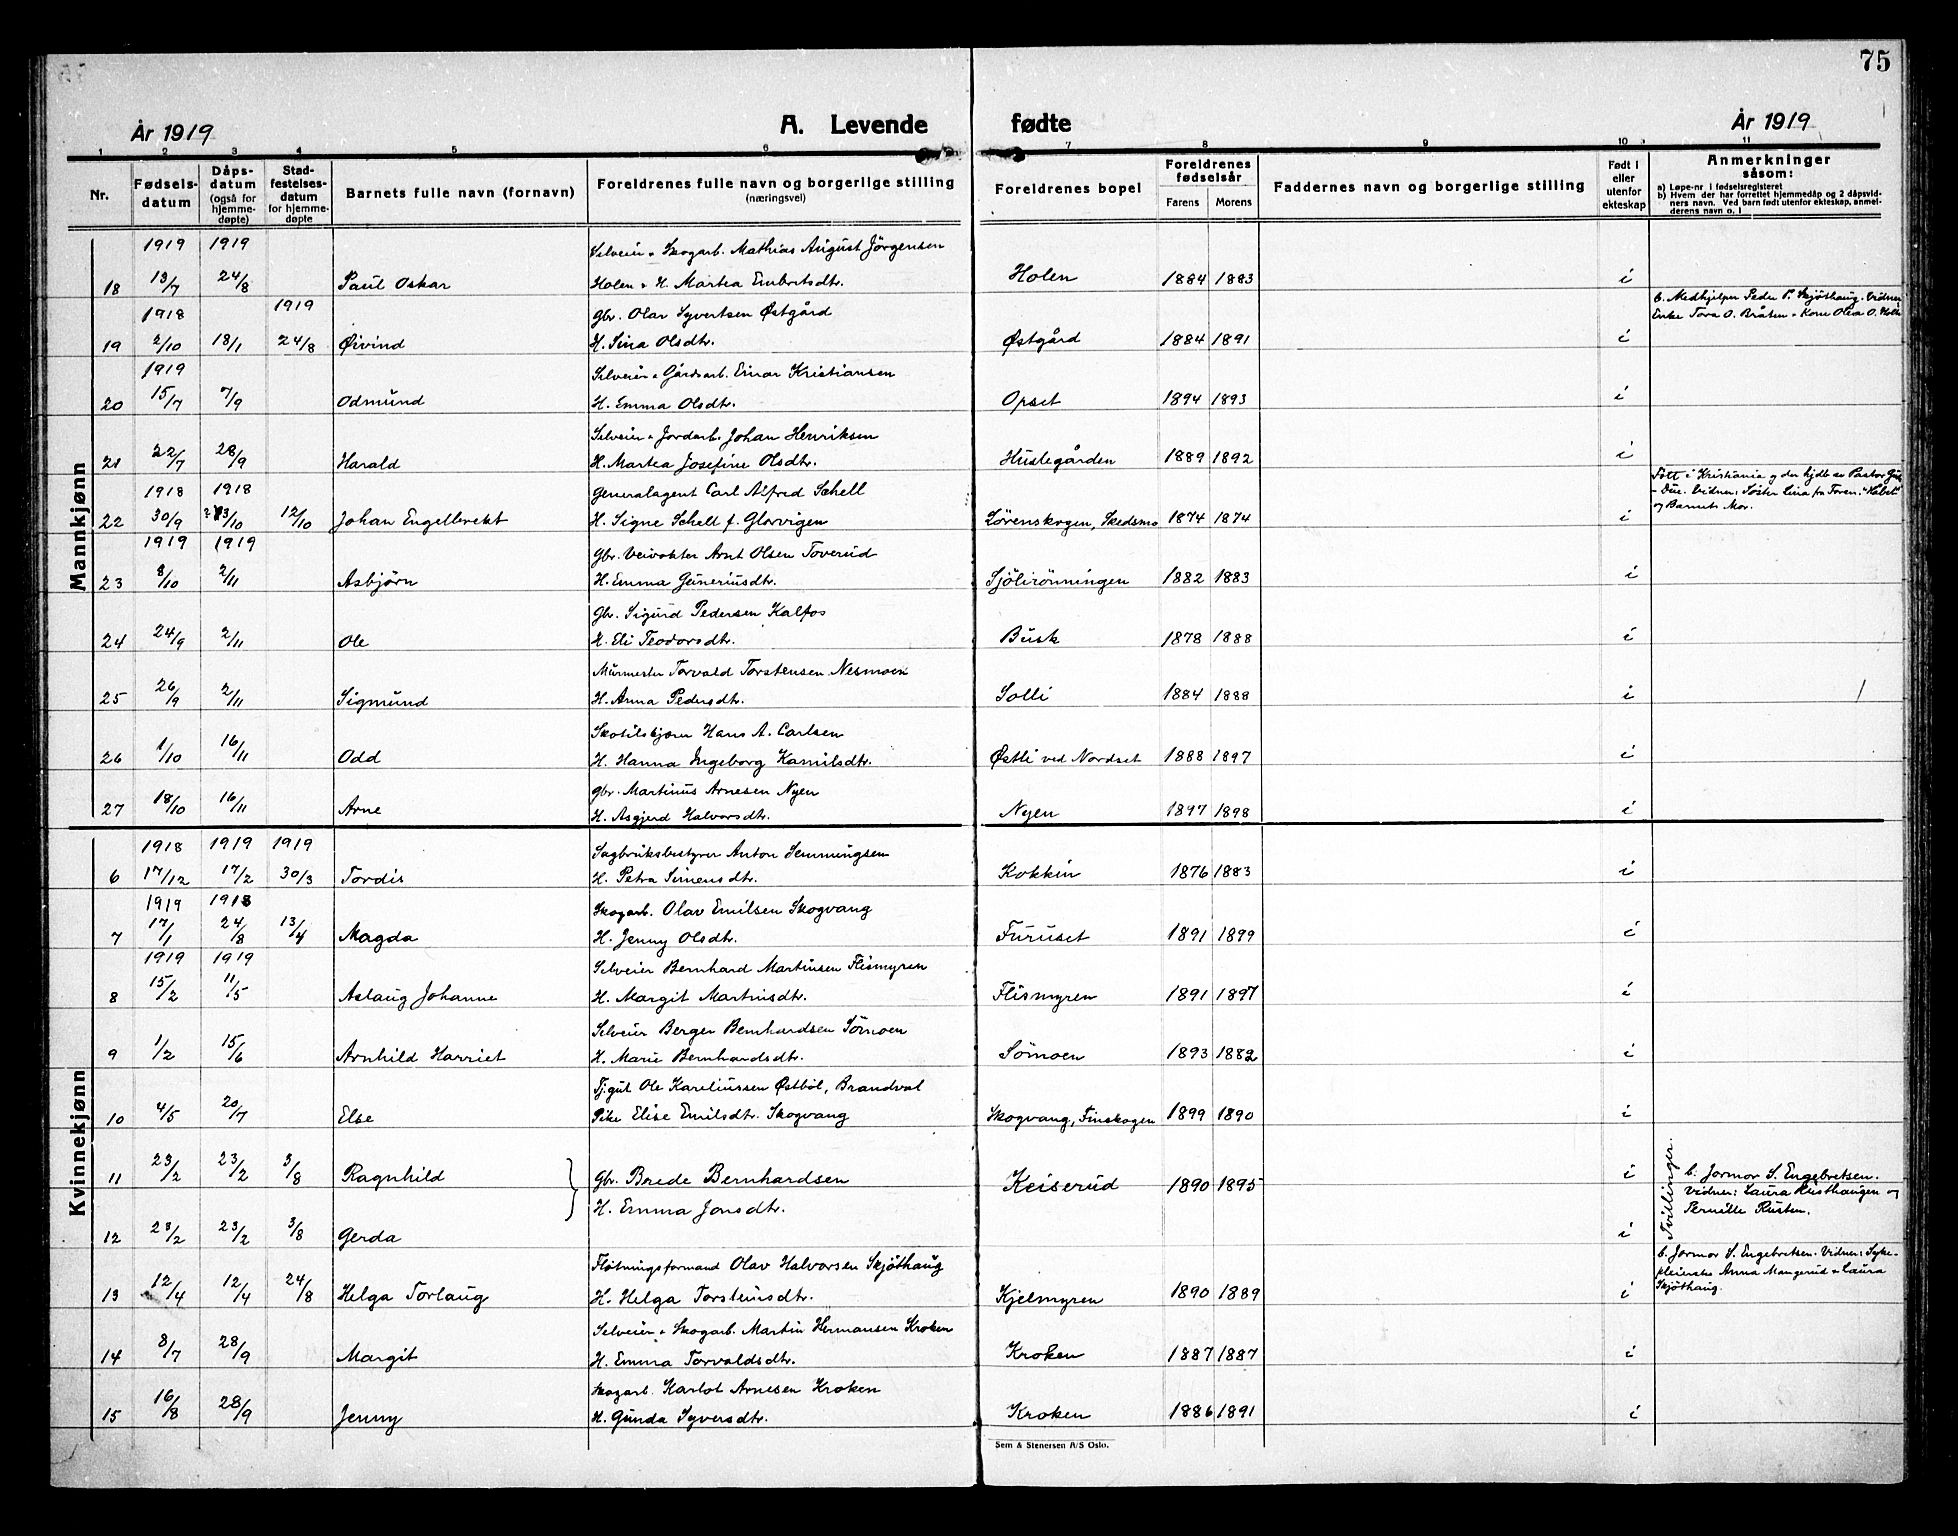 75
År 1919
A. Levende fødte
År 1919
1 2 3 4 5 6 7 8 9 10 11
Nr.
Fødsels-
datum
Dåps-
datum
(også for
hjemme-
døpte)
Stad-
festelses-
datum
for hjemme-
døpte
Barnets fulle navn (fornavn)
Foreldrenes fulle navn og borgerlige stilling
(næringsvei)
Foreldrenes bopel
Foreldrenes
fødselsår
Farens Morens
Faddernes navn og borgerlige stilling
Født i
eller
utenfor
ekteskap
Anmerkninger
såsom:
a) Løpe-nr i fødselsregisteret
b) Hvem der har forrettet hjemmedåp og 2 dåpsvid-
ners navn. Ved barn født utenfor ekteskap, anmel-
derens navn o. l
Mannkjønn
1919 1919 Selveier & Skogarb. Mathias August Jörgensen
18 13/7 24/8 Paul Oskar Holen & H. Martea Embretsdtr. Holen 1884 1883 i
1918 1919 Gbr. Olav Syvertsen Østgård b. Medhjelper Peder P. Skjöthaug. Vidner,
Enke Tora O. Bråten & Kone Olea O. Holt
19 2/10 18/1 24/8 Øivind H. Sina Olsdtr. Østgård 1884 1891 i
1919 Selveier & Gårdsarb. Einar Kristiansen
20 15/7 7/9 Odmund H. Emma Olsdtr. Opset 1894 1893 i
Selveier & Jordarb. Johan Henriksen
21 22/7 28/9 Harald H. Martea Josefine Olsdtr. Huslegården 1889 1892 i
1918 1918 Generalagent Carl Alfred Schell Född i Kristiania og der hjdb av Pastor
Due. Vidner: Søster Lina fra Foren. "Håbet"
og Barnets Mor.
22 30/9 13/10 12/10 Johan Engelbrekt H. Signe Schell f. Glørvigen Lørenskogen, Skedsmo 1874 1874 i
1919 1919 Gbr. Veivokter Arnt Olsen Toverud
23 8/10 2/11 Asbjørn H. Emma Guneriusdtr. Sjölirönningen 1882 1883 i
Gbr. Sigurd Pedersen Kalfos
24 24/9 2/11 Ole H. Eli Teodorsdtr. Busk 1878 1888 i
Murmester Torvald Torstensen Nesmoen
25 26/9 2/11 Sigmund H. Anna Pedersdtr. Solli 1884 1888 i
Skotilskjærer Hans A. Carlsen
26 1/10 16/11 Odd H. Hanna Ingeborg Kamilsdtr. Østli ved Nordset 1888 1897 i
Gbr. Martinus Arnesen Nyen
27 18/10 16/11 Arne H. Asgjerd Halvorsdtr. Nyen 1897 1898 i
Kvinnekjønn
1918 1919 1919 Sagbruksbestyrer Anton Semmingsen
6 17/12 17/2 30/3 Tordis H. Petra Simensdtr. Kokkin 1876 1883 i
1919 1918 Skogarb. Olav Emilsen Skogvang
7 17/1 24/8 13/4 Magda H. Jenny Olsdtr. Furuset 1891 1899 i
1919 1919 Selveier Bernhard Martinsen Flismyren
8 15/2 11/5 Aslaug Johanne H. Margit Martinsdtr. Flismyren 1891 1897 i
Selveier Berger Bernhardsen Sömoen
9 1/2 15/6 Arnhild Harriet H. Marie Bernhardsdtr. Sömoen 1893 1882 i
Tj.gut Ole Kareliussen Østböl, Brandval
10 4/5 20/7 Else Pike Elise Emilsdtr. Skogvang Skogvang, Finskogen 1899 1890 i
11 23/2 23/2 3/8 Ragnhild Gbr. Brede Bernhardsen Keiserud 1890 1895 i Tvillinger. b. Jormor S. Engebretsen.
Vidner: Laura Rusthaugen og
Pernille Rusten.
H. Emma Jonsdtr.
12 23/2 23/2 3/8 Gerda i
Fløtningsformand Olav Halvorsen Skjöthaug b. Jormor S. Engebretsen. Vidner: Syke-
pleierske Anna Mangerud & Laura
Skjöthaug.
13 12/4 12/4 24/8 Helga Torlaug H. Helga Torsteinsdtr. Kjelmyren 1890 1889 i
Selveier & Skogarb. Martin Hermansen Kroken
14 8/7 28/9 Margit H. Emma Torvaldsdtr. Kroken 1887 1887 i
Skogarb. Karlot Arnesen Kroken
15 16/8 28/9 Jenny H. Gunda Syversdtr. Kroken 1886 1891 i
Sem & Stenersen A/S Oslo.